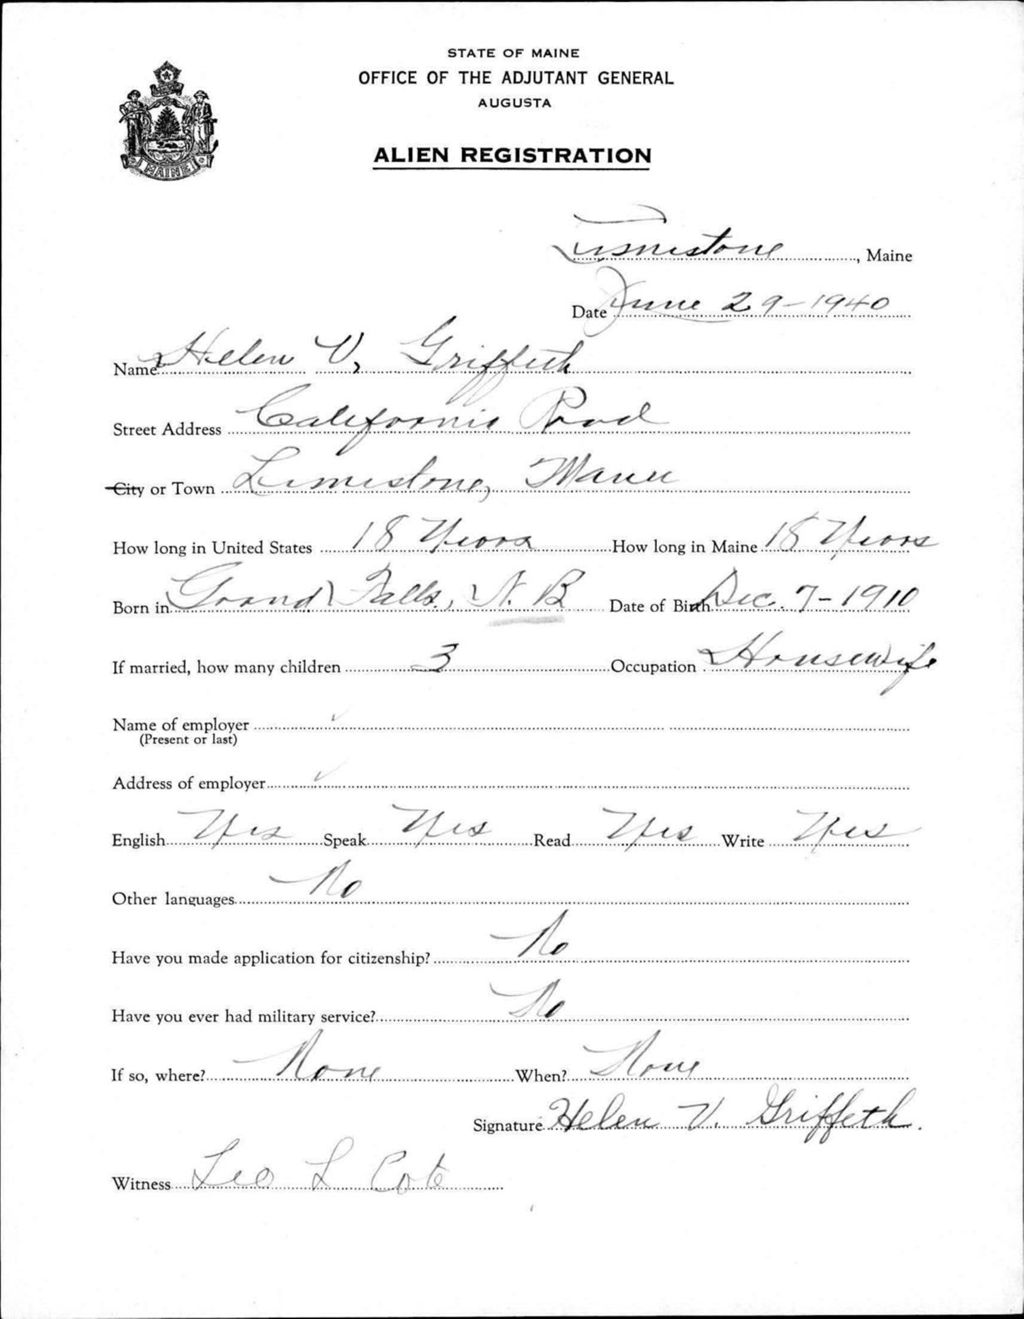 STATE OF MAINE
OFFICE OF THE ADJUTANT GENERAL
AUGUSTA
MAINE
ALIEN REGISTRATION
Limestone, Maine
Date June 29-1940
Name Helen V. Griffeth
Street Address California Road
City or Town Limestone, Maine
How long in United States 18 Years How long in Maine 18 Years
Born in Grand Falls, N. B Date of Birth Dec. 7-1910
If married, how many children 3 Occupation Housewife
Name of employer
(Present or last)
Address of employer
English Yes Speak Yes Read Yes Write Yes
Other languages No
Have you made application for citizenship? No
Have you ever had military service? No
If so, where? None When? None
Signature Helen V. Griffeth.
Witness Leo L Cote